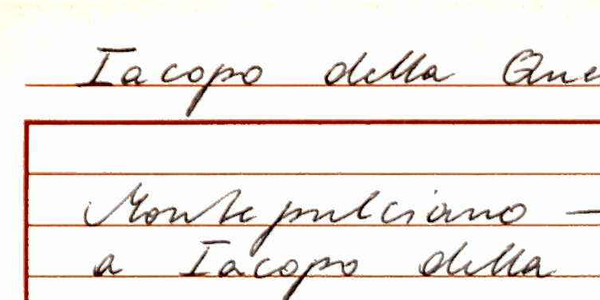 Iacopo della Que
Montepulciano —
a Iacopo della